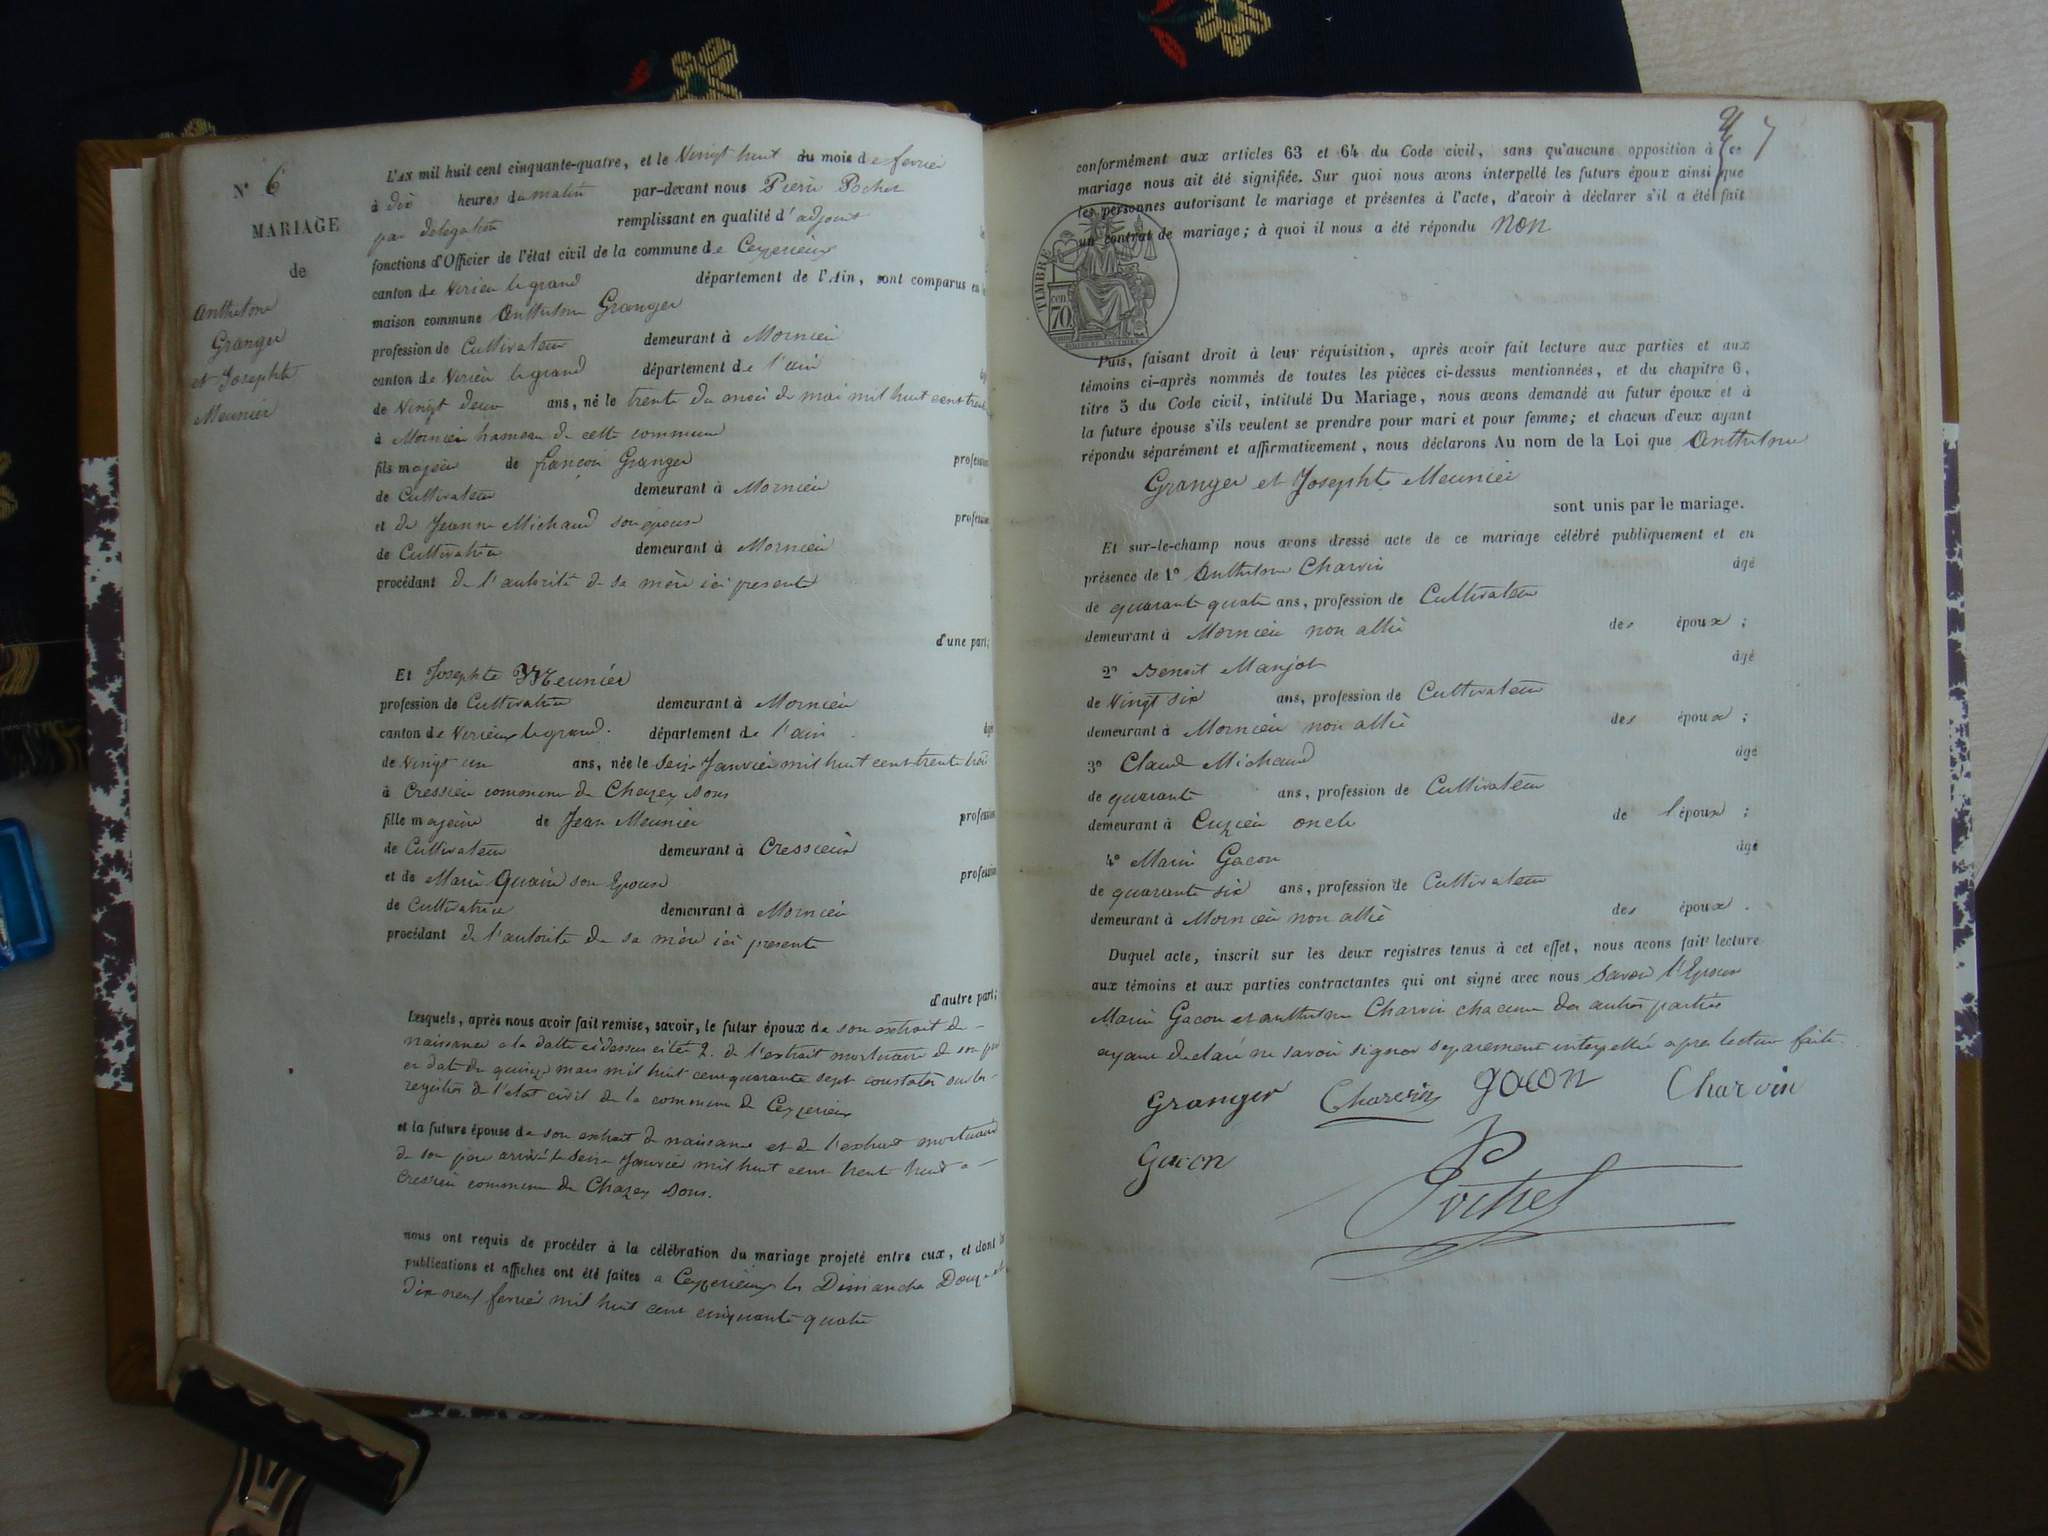 N° 6
MARIAGE
de
Anthelme
Granger
et Josephte
Meunier
L'AN mil huit cent cinquante-quatre, et le Vingt huit du mois de fevrier
à dix heures du matin par-devant nous Pierre Pochet
par délégation remplissant en qualité d'adjoint
fonctions d'Officier de l'état civil de la commune de Ceyzerieux
canton de Virieu le grand département de l'Ain, sont comparus en
maison commune Anthelme Granger
profession de Cultivateur demeurant à Mornieu
canton de Virieu le grand département de l'ain
de Vingt deux ans, né le trente du mois de mai mil huit cent
à Mornieu hameau de cette commune
fils majeur de françois Granger profession
de Cultivateur demeurant à Mornieu
et de Jeanne Michaud son épouse profession
de Cultivatrice demeurant à Mornieu
procédant de l'autorité de sa mère ici presente
d'une part;
Et Josephte Meunier
profession de Cultivatrice demeurant à Mornieu
canton de Virieux le grand. département de l'ain âgée
de Vingt un ans, née le seize Janvier mil huit cent trente trois
à Cressieu commune de Chazey sous
fille majeure de Jean Meunier profession
de Cultivateur demeurant à Cressieux
et de Marie Quain son Epouse profession
de Cultivatrice demeurant à Mornieu
procédant de l'autorité de sa mère ici presente
d'autre part;
Lesquels, après nous avoir fait remise, savoir, le futur époux de son extrait de
naissance a la datte cidessus citée 2. de l'extrait mortuaire de son père
en date du quinze mars mil huit cent quarante sept constatés sur les
registres de l'etat civil de la commune de Ceyzerieux
et la future épouse de son extrait de naissance et de l'extrait mortuaire
de son père arrivé le seize Janvier mil huit cent trente huit a
Cressieu commune de Chazey sous.
nous ont requis de procéder à la célébration du mariage projeté entre eux, et dont les
publications et affiches ont été faites a Ceyzerieux les Dimanches Douze et
Dix neuf fevrier mil huit cent cinquante quatre
7
conformément aux articles 63 et 64 du Code civil, sans qu'aucune opposition à ce
mariage nous ait été signifiée. Sur quoi nous avons interpellé les futurs époux ainsi que
les personnes autorisant le mariage et présentes à l'acte, d'avoir à déclarer s'il a été fait
un contrat de mariage; à quoi il nous a été répondu non
TIMBRE
cen
70
Puis, faisant droit à leur réquisition, après avoir fait lecture aux parties et aux
témoins ci-après nommés de toutes les pièces ci-dessus mentionnées, et du chapitre 6,
titre 5 du Code civil, intitulé Du Mariage, nous avons demandé au futur époux et à
la future épouse s'ils veulent se prendre pour mari et pour femme; et chacun d'eux ayant
répondu séparément et affirmativement, nous déclarons Au nom de la Loi que Anthelme
Granger et Josephte Meunier
sont unis par le mariage.
Et sur-le-champ nous avons dressé acte de ce mariage célébré publiquement et en
présence de 1° Anthelme Charvin âgé
de quarante quatre ans, profession de Cultivateur
demeurant à Mornieu non allié des époux;
2° Benoit Manjot âgé
de Vingt six ans, profession de Cultivateur
demeurant à Mornieu non allié des époux;
3° Claude Michaud âgé
de quarante ans, profession de Cultivateur
demeurant à Cuzieu oncle de l'époux;
4° Marin Gacon âgé
de quarante six ans, profession de Cultivateur
demeurant à Mornieu non allié des époux.
Duquel acte, inscrit sur les deux registres tenus à cet effet, nous avons fait lecture
aux témoins et aux parties contractantes qui ont signé avec nous savoir l'Epoux
Marin Gacon et anthelme Charvin chacune des autres parties
ayant declaré ne savoir signer separement interpellée apres lecture faite.
Granger Charvin gacon Charvin
Gacon
Pochet